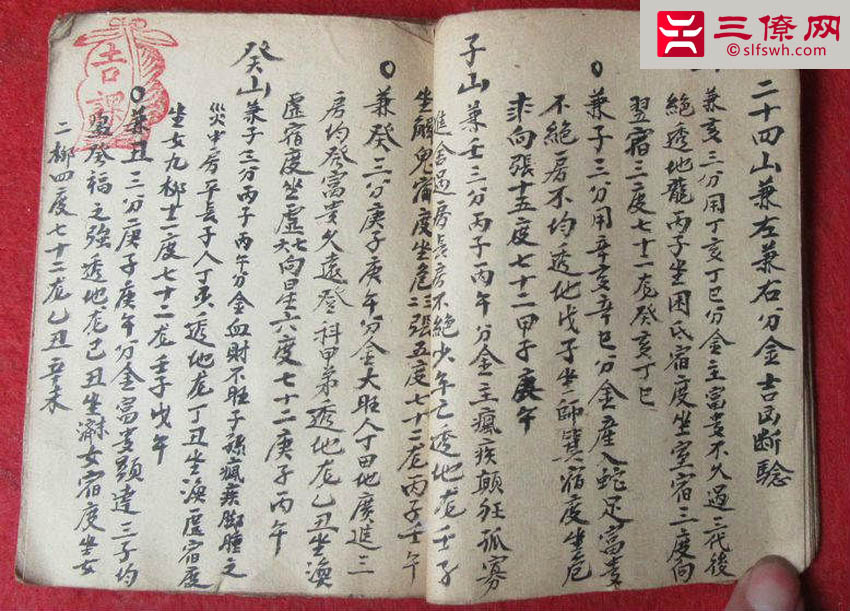 三僚网
slfswh.com
二十四山兼左兼右分金吉凶断验
兼亥三分用丁亥丁巳分金主富贵不久過三代後
絶透地龍丙子坐困氐宿度坐室宿三度向
翌宿三度七十一龙癸亥丁巳
兼子三分用辛亥辛巳分金産入蛇足富贵
不絶房不均透地戊子坐師箕宿度坐危
向張十五度七十二甲子庚午
子山兼壬三分丙子丙午分金主瘋疾颠狂孤寡
進舍過房長房不絶少年亡透地龙壬子
坐解鬼宿度坐危三張五度七十二龙丙子壬午
兼癸三分庚子庚午分金大旺人丁田地廣進三
房均發富贵久遠登科甲弟透地龙乙丑坐渙
虚宿度坐虚七向星六度七十二庚子丙午
癸山兼子三分丙子丙午分金血財不旺子孫瘋疾脚腫之
災中房平長子人丁失透地龙丁丑坐渙度宿度
坐女九柳十二度七十二龙壬子戊午
兼丑三分庚子庚午分金富贵顕達三子均
發福之強透地龙己丑坐女宿度坐女
二柳四度七十二龙乙丑辛未
吉課